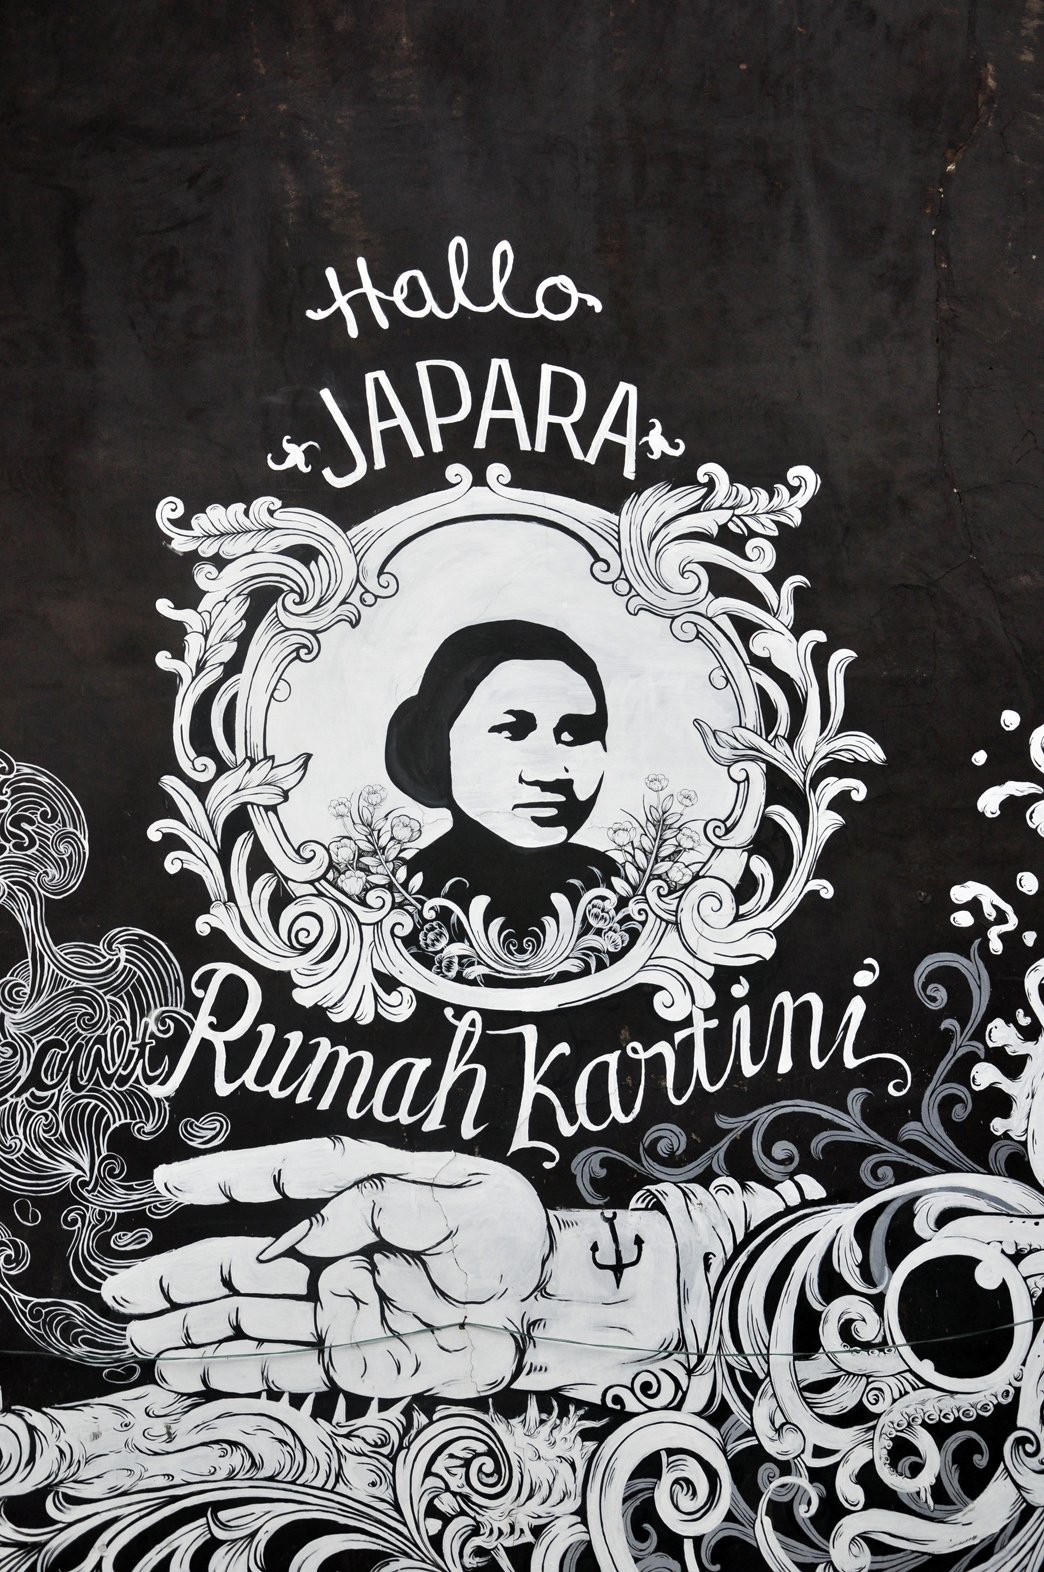 Hallo
JAPARA
Rumah Kartini